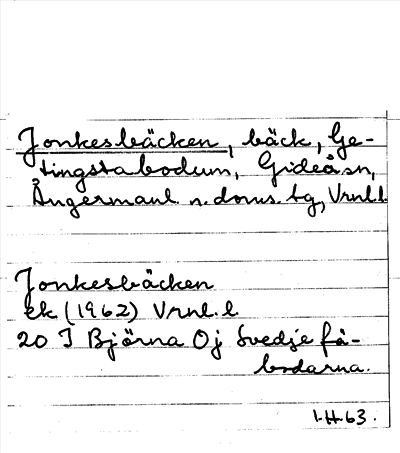 Jonkesbäcken, bäck, Ge-
tingstabodum, Gideå sn,
Ångermanl. n. doms. tg, Vrnl. l.
Jonkesbäcken
ek (1962) Vrnl. l
20 I Björna Oj Svedje fä-
bodarna.
1.H.63.